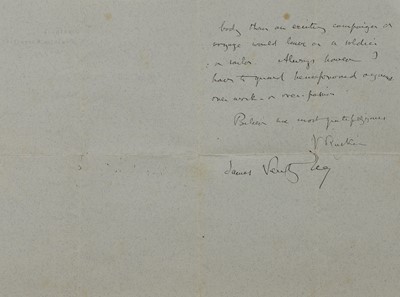 body than an exciting campaign or
voyage would have on a soldier
or sailor Always however I
have to guard henceforward against
over work - or over-passion
Believe me most gratefully yours
J Ruskin
James Esq